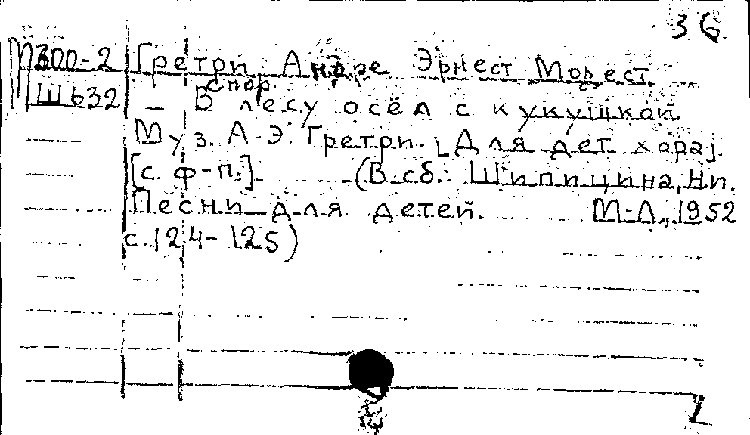 36
М300-2 Гретри, Андре Эрнест Модест
Спор
Ш632 — В лесу осёл с кукушкой
Муз. А-Э. Гретри. [Для дет. хора].
[с. ф-п.]. (В сб.: Шипицина, Н.п.
Песни для детей. М-Л, 1952
с. 124-125)